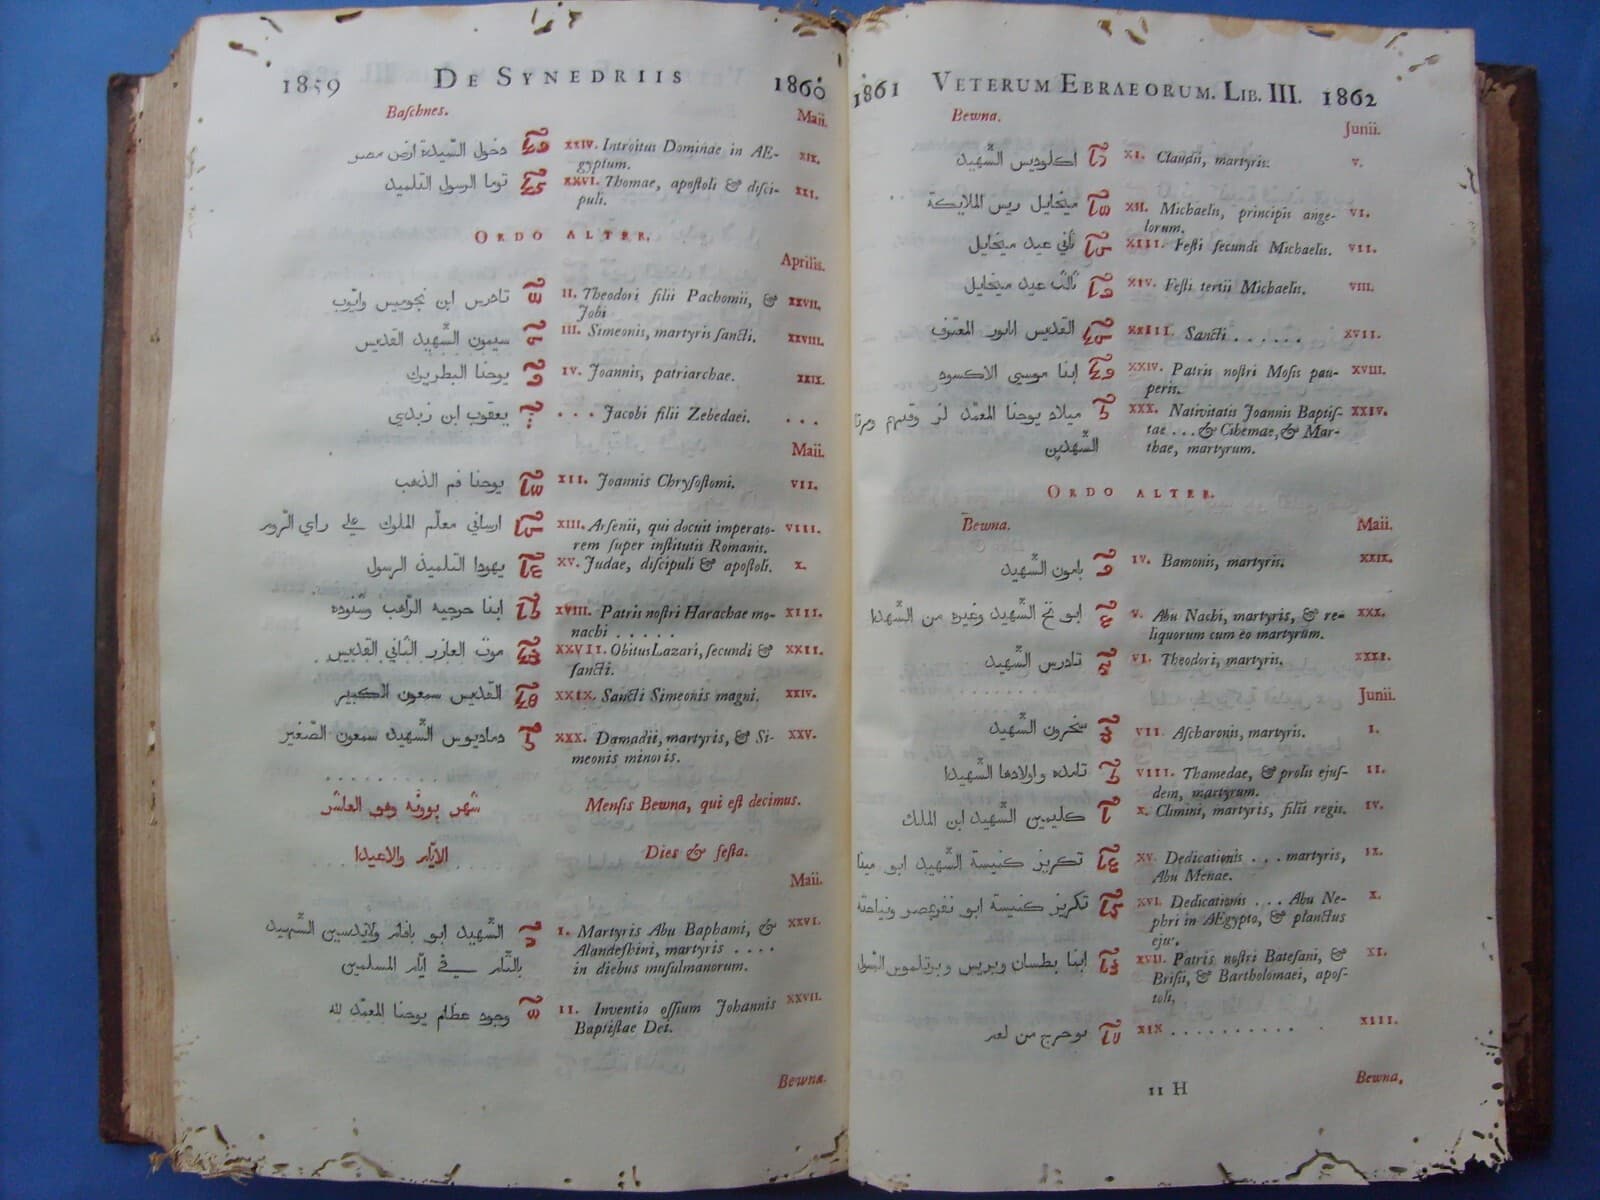 1859 DE SYNEDRIIS 1860
Baschnes. Maii.
دخول السّيدة ارض مصر XXIV. Introitus Dominae in AE- XIX.
gyptum.
توما الرسول التلميد XXVI. Thomae, apostoli & disci- XXI.
puli.
ORDO ALTER.
Aprilis.
تادرس ابن بخوميس وايّوب II. Theodori filii Pachomii, & XXVII.
Jobi
سيمون الشّهيد القديس III. Simeonis, martyris sancti. XXVIII.
يوحنا البطريرك IV. Joannis, patriarchae. XXIX.
يعقوب ابن زبدي . . . Jacobi filii Zebedaei. . . .
Maii.
يوحنا فم الذهب XII. Joannis Chrysostomi. VII.
ارساني معلّم الملوك علي راي الرّور XIII. Arsenii, qui docuit imperato- VIII.
rem super institutis Romanis.
يهودا التلميذ الرسول XV. Judae, discipuli & apostoli. X.
ابنا حرجيه الرّاهب وشنوده XVIII. Patris nostri Harachae mo- XIII.
nachi . . . . .
موت العازر الثاني القديس XXVII. Obitus Lazari, secundi & XXII.
sancti.
القديس سمعون الكبير XXIX. Sancti Simeonis magni. XXIV.
دماديوس الشّهيد سمعون الصّغير XXX. Damadii, martyris, & Si- XXV.
meonis minoris.
شهر بوونه وهو العاشر Mensis Bewna, qui est decimus.
الايّام والاعيدا Dies & festa.
Maii.
الشّهيد ابو بافام I. Martyris Abu Baphami, & XXVI.
Alandeshini, martyris . . . .
في ايّام المسلمين in diebus musulmanorum.
وجود عظام يوحنا المعمّد لله II. Inventio ossium Johannis XXVII.
Baptistae Dei.
Bewna.
1861 VETERUM EBRAEORUM. LIB. III. 1862
Bewna. Junii.
اكلوديس الشّهيد XI. Claudii, martyris. V.
ميخايل ريس الملايكة XII. Michaelis, principis ange- VI.
lorum.
ثاني عيد ميخايل XIII. Festi secundi Michaelis. VII.
ثالث عيد ميخايل XIV. Festi tertii Michaelis. VIII.
القديس ابانور المعترف XXIII. Sancti . . . . . . XVII.
ابنا موسي الاكسوه XXIV. Patris nostri Mosis pau- XVIII.
peris.
ميلاد يوحنا المعمّد XXX. Nativitatis Joannis Baptis- XXIV.
tae . . . & Cihemae, & Mar-
الشّهدين thae, martyrum.
ORDO ALTER.
Bewna. Maii.
بامون الشّهيد IV. Bamonis, martyris. XXIX.
ابو نخ الشّهيد وغيره من الشّهدا V. Abu Nachi, martyris, & re- XXX.
liquorum cum eo martyrum.
تادرس الشّهيد VI. Theodori, martyris. XXXI.
Junii.
سخرون الشّهيد VII. Ascharonis, martyris. I.
تامده واولادها الشّهيدا VIII. Thamedae, & prolis ejus- II.
dem, martyrum.
كليمين الشّهيد ابن الملك X. Climini, martyris, filii regis. IV.
تكريز كنيسة الشّهيد ابو مينا XV. Dedicationis . . . martyris, IX.
Abu Menae.
تكريز كنيسة ابو نفر XVI. Dedicationis . . . Abu Ne- X.
phri in AEgypto, & planctus
ejus.
ابنا بطسان وبريس وبرتلموس الرّسول XVII. Patris nostri Batesani, & XI.
Brisii, & Bartholomaei, apos-
toli,
من XIX . . . . . . . . . . XIII.
11 H Bewna,